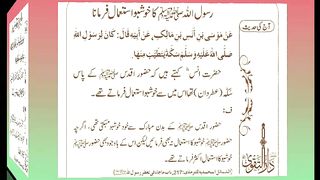 رسول اللہ ﷺ کا خوشبو استعمال فرمانا
آج کی حدیث
عَنْ مُوْسَى بْنِ أَنَسِ بْنِ مَالِكٍ عَنْ أَبِيْهِ قَالَ: كَانَ لِرَسُوْلِ اللهِ
صَلَّى اللهُ عَلَيْهِ وَسَلَّمَ سُكَّةٌ يَتَطَيَّبُ مِنْهَا۔
حضرت انسؓ کہتے ہیں کہ حضور اقدس ﷺ کے پاس
سکہ (عطر دان) تھا اس میں سے خوشبو استعمال فرماتے تھے۔
ف:
حضور اقدس ﷺ کے بدن مبارک سے خود خوشبو مہکتی تھی، اگرچہ
حضور ﷺ خوشبو کا استعمال نہ بھی فرمائیں لیکن اس کے باوجود بھی حضور
ﷺ خوشبو کا استعمال اکثر فرماتے تھے۔
دار التقویٰ